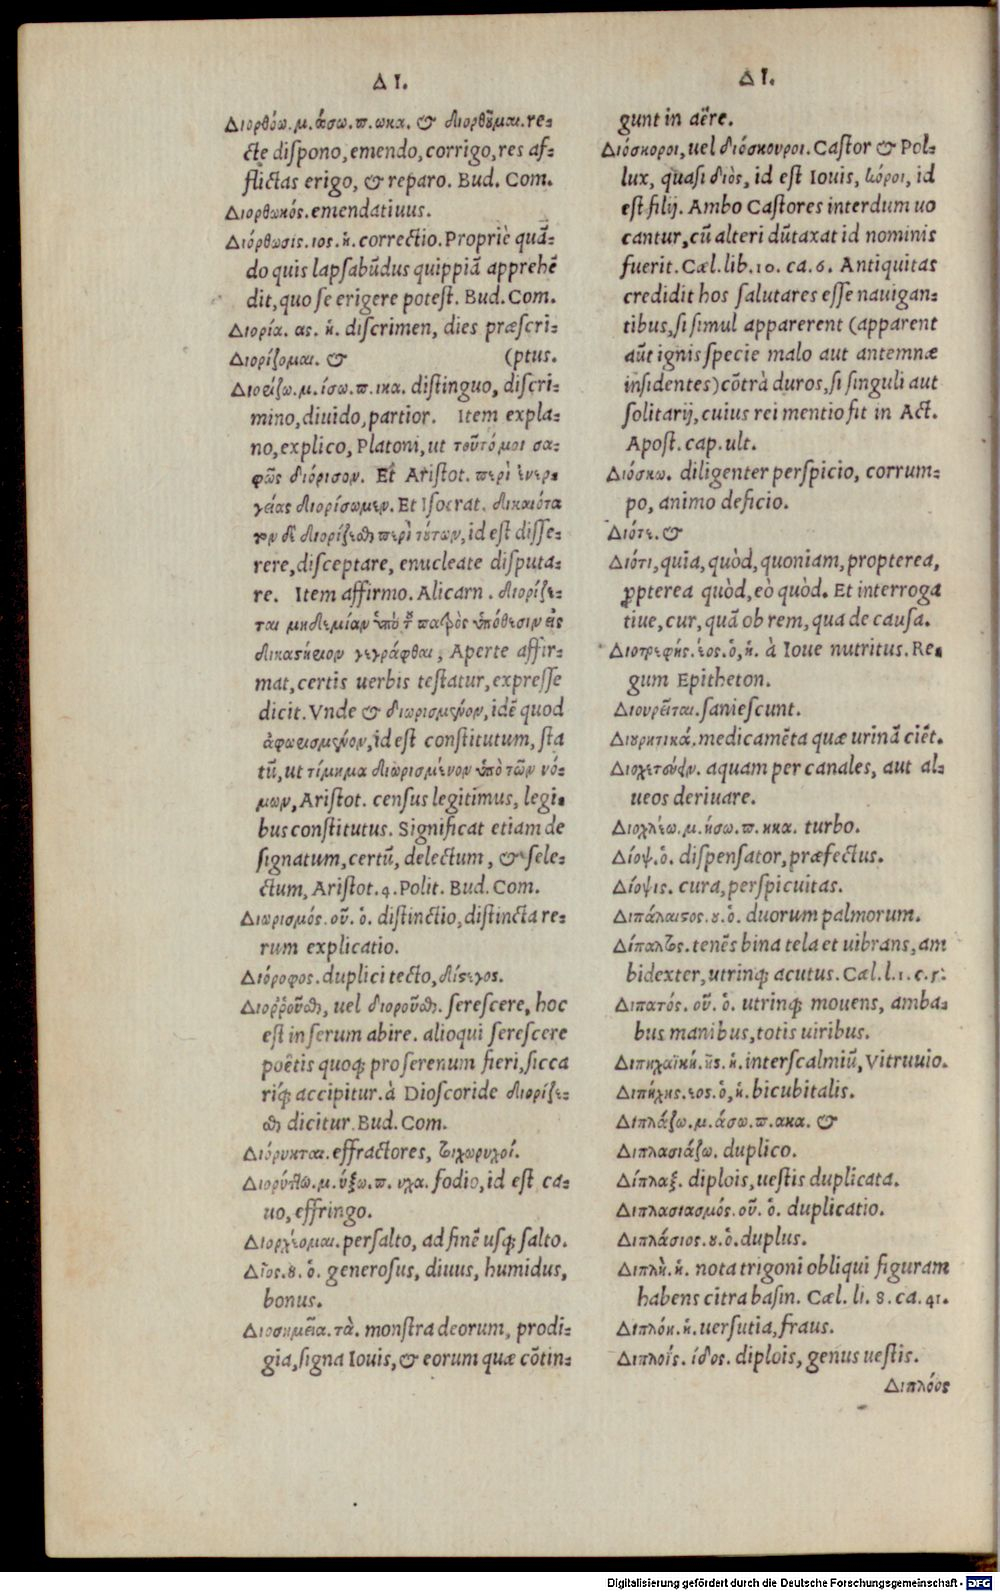 Δ Ι.
Διορθόω.μ.ώσω.π.ωκα. & διορθοῦμαι.re-
cte dispono, emendo, corrigo, res af-
flictas erigo, & reparo. Bud. Com.
Διορθωκός. emendatiuus.
Διόρθωσις.ιος.ἡ. correctio. Propriè quã-
do quis lapsabũdus quippiã apprehẽ
dit, quo se erigere potest. Bud. Com.
Διορία. ας. ἡ. discrimen, dies præscri-
Διορίζομαι. & (ptus.
Διορίζω.μ.ίσω.π.ικα. distinguo, discri-
mino, diuido, partior. Item expla-
no, explico, Platoni, ut τοῦτό μοι σα-
φῶς διόρισον. Et Aristot. περὶ ἐνερ-
γείας διορίσωμεν. Et Isocrat. δικαιότα
τον δὲ διορίζεσθαι περὶ τούτων, id est disse-
rere, disceptare, enucleate disputa-
re. Item affirmo. Alicarn. διορίζε-
ται μηδεμίαν ὑπὸ τοῦ πατρὸς ὑπόθεσιν εἰς
δικαστήριον γεγράφθαι, Aperte affir-
mat, certis uerbis testatur, expresse
dicit. Vnde & διωρισμένον, idẽ quod
ἀφωρισμένον, id est constitutum, sta
tũ, ut τίμημα διωρισμένον ὑπὸ τῶν νό-
μων, Aristot. census legitimus, legi-
bus constitutus. Significat etiam de
signatum, certũ, delectum, & sele-
ctum, Aristot. 4. Polit. Bud. Com.
Διωρισμός. οῦ. ὁ. distinctio, distincta re-
rum explicatio.
Διόροφος. duplici tecto, δίστεγος.
Διοῤῥοῦσθαι, uel διοροῦσθαι. serescere, hoc
est in serum abire. alioqui serescere
poêtis quoq; pro serenum fieri, sicca
riq́; accipitur. à Dioscoride διορίζε-
σθαι dicitur. Bud. Com.
Διόρυκται. effractores, τοιχωρυχοί.
Διορύττω.μ.ύξω.π. υχα. fodio, id est ca-
uo, effringo.
Διορχέομαι. persalto, ad finẽ usq; salto.
Δῖος.ου. ὁ. generosus, diuus, humidus,
bonus.
Διοσημεῖα. τὰ. monstra deorum, prodi-
gia, signa Iouis, & eorum quæ cõtin-
Δ Ι.
gunt in aëre.
Διόσκοροι, uel διόσκουροι. Castor & Pol-
lux, quasi διὸς, id est Iouis, κόροι, id
est filij. Ambo Castores interdum uo
cantur, cũ alteri dũtaxat id nominis
fuerit. Cæl. lib. 10. ca. 6. Antiquitas
credidit hos salutares esse nauigan-
tibus, si simul apparerent (apparent
aũt ignis specie malo aut antemnæ
insidentes) cõtrà duros, si singuli aut
solitarij, cuius rei mentio fit in Act.
Apost. cap. ult.
Διόσκω. diligenter perspicio, corrum-
po, animo deficio.
Διότε. &
Διότι, quia, quòd, quoniam, propterea,
ꝓpterea quòd, eò quòd. Et interroga
tiue, cur, quã ob rem, qua de causa.
Διοτρεφής.έος.ὁ,ἡ. à Ioue nutritus. Re-
gum Epitheton.
Διουρεῖται. saniescunt.
Διουρητικά. medicamẽta quæ urinã ciẽt.
Διοχετεύειν. aquam per canales, aut al-
ueos deriuare.
Διοχλέω.μ.ήσω.π. ηκα. turbo.
Δίοψ.ὁ. dispensator, præfectus.
Δίοψις. cura, perspicuitas.
Διπάλαιστος.ου.ὁ. duorum palmorum.
Δίπαλτος. tenẽs bina tela et uibrans, am
bidexter, utrinq; acutus. Cæl. l. 1. c. 5.
Διπατός. οῦ. ὁ. utrinq; mouens, amba-
bus manibus, totis uiribus.
Διπηχαϊκή. ῆς. ἡ. interscalmiũ, Vitruuio.
Διπήχης.εος.ὁ,ἡ. bicubitalis.
Διπλάζω.μ.άσω.π.ακα. &
Διπλασιάζω. duplico.
Δίπλαξ. diplois, uestis duplicata.
Διπλασιασμός. οῦ. ὁ. duplicatio.
Διπλάσιος.ου.ὁ. duplus.
Διπλῆ.ἡ. nota trigoni obliqui figuram
habens citra basin. Cæl. li. 8. ca. 41.
Διπλόη.ἡ. uersutia, fraus.
Διπλοΐς. ίδος. diplois, genus uestis.
Διπλόος
Digitalisierung gefördert durch die Deutsche Forschungsgemeinschaft - DFG